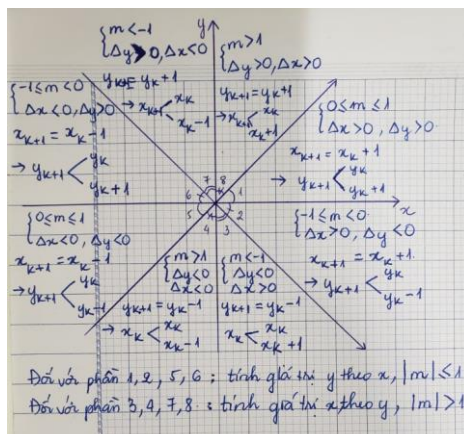 y
{ m < -1
Δy > 0, Δx < 0
y_{k+1} = y_k + 1
→ x_{k+1} < x_k
x_k - 1
{ m > 1
Δy > 0, Δx > 0
y_{k+1} = y_k + 1
→ x_{k+1} < x_k
x_k + 1
{ -1 ≤ m < 0
Δx < 0, Δy > 0
x_{k+1} = x_k - 1
→ y_{k+1} < y_k
y_k + 1
{ 0 ≤ m ≤ 1
Δx > 0, Δy > 0
x_{k+1} = x_k + 1
→ y_{k+1} < y_k
y_k + 1
7 8
6 1
5 2
4 3
x
{ 0 ≤ m ≤ 1
Δx < 0, Δy < 0
x_{k+1} = x_k - 1
→ y_{k+1} < y_k
y_k - 1
{ m > 1
Δy < 0
Δx < 0
y_{k+1} = y_k - 1
→ x_k < x_k
x_k - 1
{ m < -1
Δy < 0
Δx > 0
y_{k+1} = y_k - 1
x_k < x_k
x_k + 1
{ -1 ≤ m < 0
Δx > 0, Δy < 0
x_{k+1} = x_k + 1
→ y_{k+1} < y_k
y_k - 1
Đối với phần 1, 2, 5, 6 : tính giá trị y theo x, |m| ≤ 1
Đối với phần 3, 4, 7, 8 : tính giá trị x theo y, |m| > 1